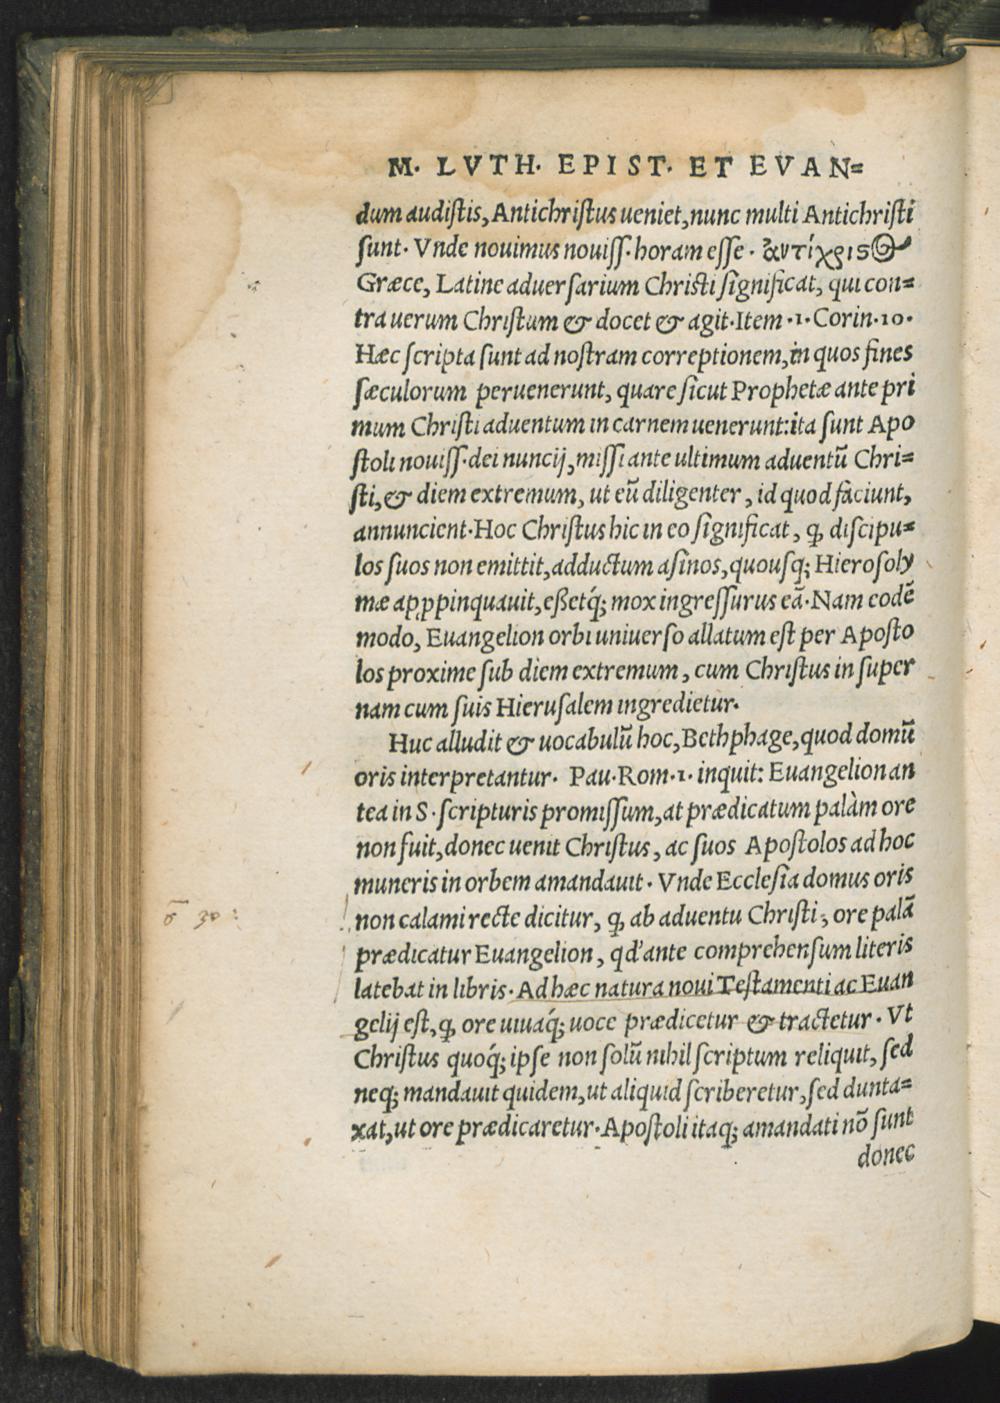 M. LVTH. EPIST. ET EVAN=
dum audistis, Antichristus ueniet, nunc multi Antichristi
sunt. Vnde nouimus nouiss. horam esse. ἀντίχριςος
Græce, Latine aduersarium Christi significat, qui con=
tra uerum Christum & docet & agit. Item .1. Corin. 10.
Hæc scripta sunt ad nostram correptionem, in quos fines
sæculorum peruenerunt, quare sicut Prophetæ ante pri
mum Christi aduentum in carnem uenerunt: ita sunt Apo
stoli nouiss. dei nuncij, missi ante ultimum aduentũ Chri=
sti, & diem extremum, ut eũ diligenter, id quod faciunt,
annuncient. Hoc Christus hic in eo significat, ꝙ discipu=
los suos non emittit, adductum asinos, quousq; Hierosoly
mæ apꝓpinquauit, eßetq́; mox ingressurus eã. Nam eodẽ
modo, Euangelion orbi uniuerso allatum est per Aposto
los proxime sub diem extremum, cum Christus in super
nam cum suis Hierusalem ingredietur.
Huc alludit & uocabulũ hoc, Bethphage, quod domũ
oris interpretantur. Pau. Rom. 1. inquit: Euangelion an
tea in S. scripturis promissum, at prædicatum palàm ore
non fuit, donec uenit Christus, ac suos Apostolos ad hoc
muneris in orbem amandauit. Vnde Ecclesia domus oris
non calami recte dicitur, ꝙ ab aduentu Christi, ore palã
prædicatur Euangelion, qd' ante comprehensum literis
latebat in libris. Ad hæc natura noui Testamenti ac Euan
gelij est, ꝙ ore uiuaq́; uoce prædicetur & tractetur. Vt
Christus quoq́; ipse non solũ nihil scriptum reliquit, sed
neq; mandauit quidem, ut aliquid scriberetur, sed dunta=
xat, ut ore prædicaretur. Apostoli itaq; amandati nõ sunt
donec